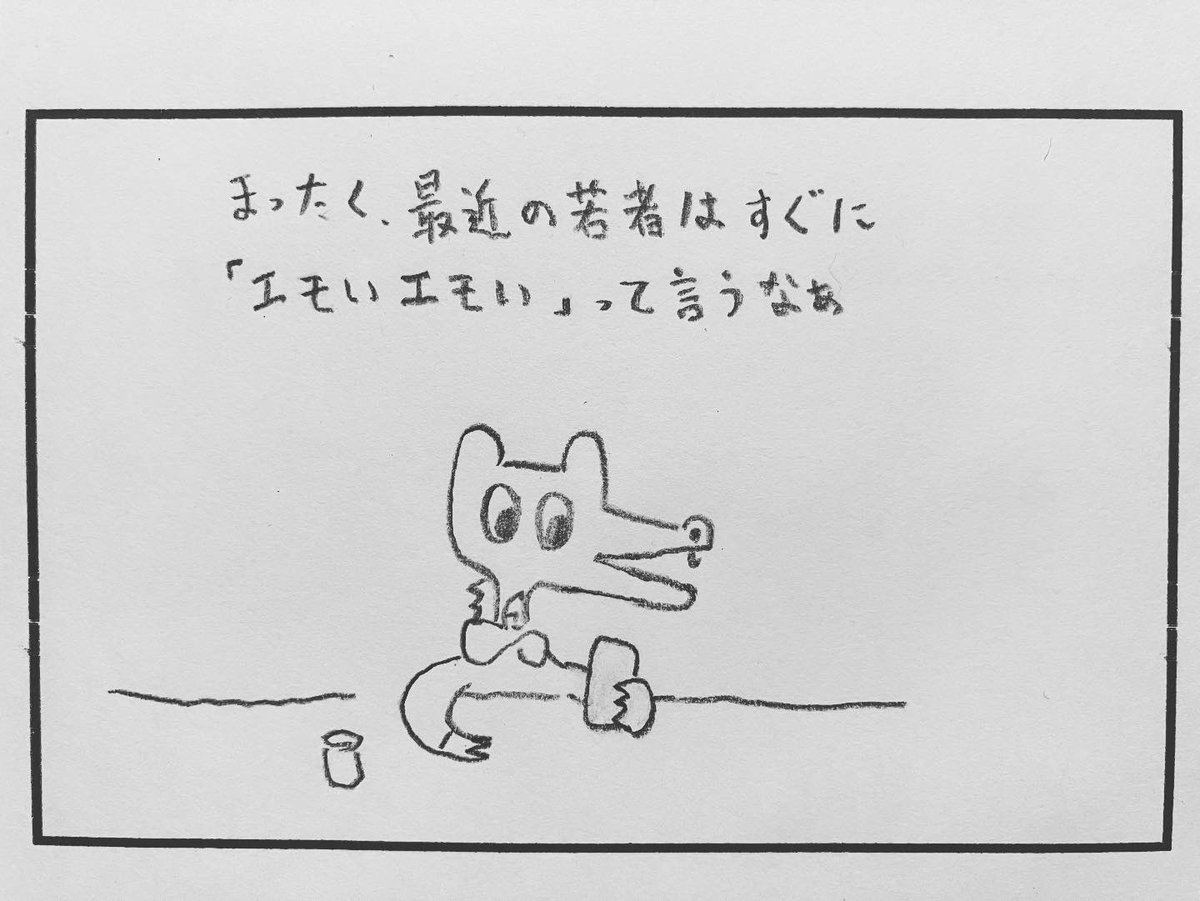 まったく、最近の若者はすぐに
「エモいエモい」って言うなぁ